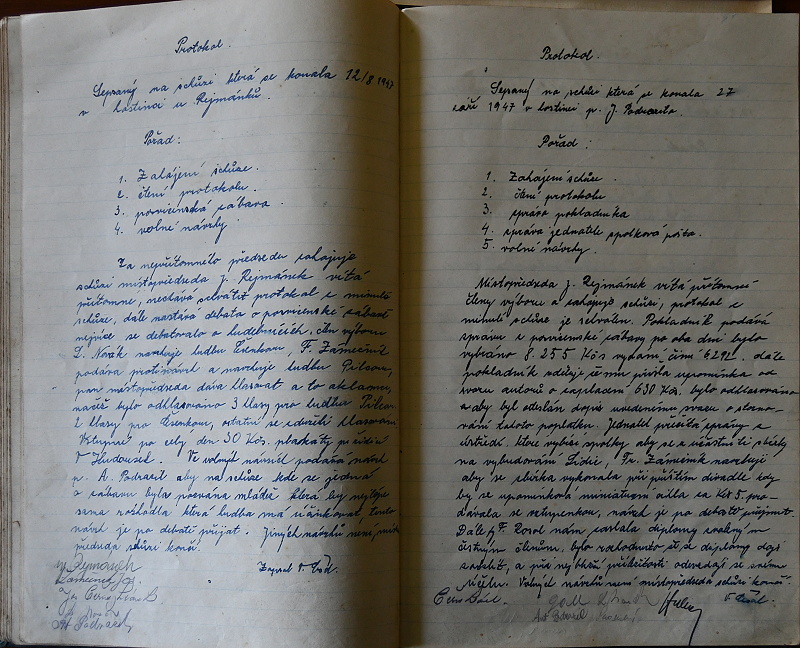 Protokol.
Sepsaný na schůzi která se konala 12/8 1947
v hostinci u Rejmánků.
Pořad:
1. Zahájení schůze.
2. čtení protokolu.
3. posvícenská zábava.
4. volné návrhy.
Za nepřítomného předsedu zahajuje
schůzi místopředseda J. Rejmánek vítá
přítomné, nechává schválit protokol z minulé
schůze, dále nastává debata o posvícenské zábavě
nejvíce se debatovalo o hudebnících, člen výboru
L. Novák navrhuje hudbu Čšenkovu, F. Zámečník
podává protinávrh a navrhuje hudbu
pan místopředseda dává hlasovat a to aklamací,
načež bylo odhlasováno 3 hlasy pro hudbu
2 hlasy pro
Vstupné po celý den 30 Kčs. plackáty
V. Hudousek. Ve volných návrzích podává návrh
p. A. Podrazil aby na schůze kde se jedná
o zábavu byla pozvána mládež která by nejlépe
sama rozhodla která hudba má účinkovat tento
návrh je po debatě přijat. Jiných návrhů není, místo
předseda schůzi končí.
Zapsal V.
Protokol.
Sepsaný na schůzi která se konala 27
září 1947 v hostinci p. J. Podrazila.
Pořad:
1. Zahájení schůze.
2. čtení protokolu
3. zpráva pokladníka
4. zpráva jednatele spolková pošta.
5. volné návrhy.
Místopředseda J. Rejmánek vítá přítomné
členy výboru a zahajuje schůzi, protokol z
minulé schůze je schválen. Pokladník podává
zprávu z posvícenské zábavy po oba dni bylo
vybráno 8.255 Kčs vydání činí 6291. dále
pokladník sděluje že mu přišla upomínka od
svazu autorů o zaplacení 630 Kčs. bylo odhlasováno
aby byl odeslán dopis uvedenému svazu o storno-
vání tohoto poplatku. Jednatel přečítá zprávy z
ústředí. které vybízí spolky aby se zúčastnili sbírky
na vybudování Lidic, Fr. Zámečník navrhuje
aby se sbírka vykonala při příštím divadle kdy
by se upomínková miniaturní cihla za Kčs 5. pro-
dávala se vstupenkou, návrh je po debatě přijmut.
Dále p. F. Kosol nám zaslala diplomy zvoleným
čestným členům, bylo rozhodnuto že se diplomy dají
zasklít, a při nejbližší příležitosti odevzdají se svému
účelu. Volných návrhů není místopředseda schůzi končí.